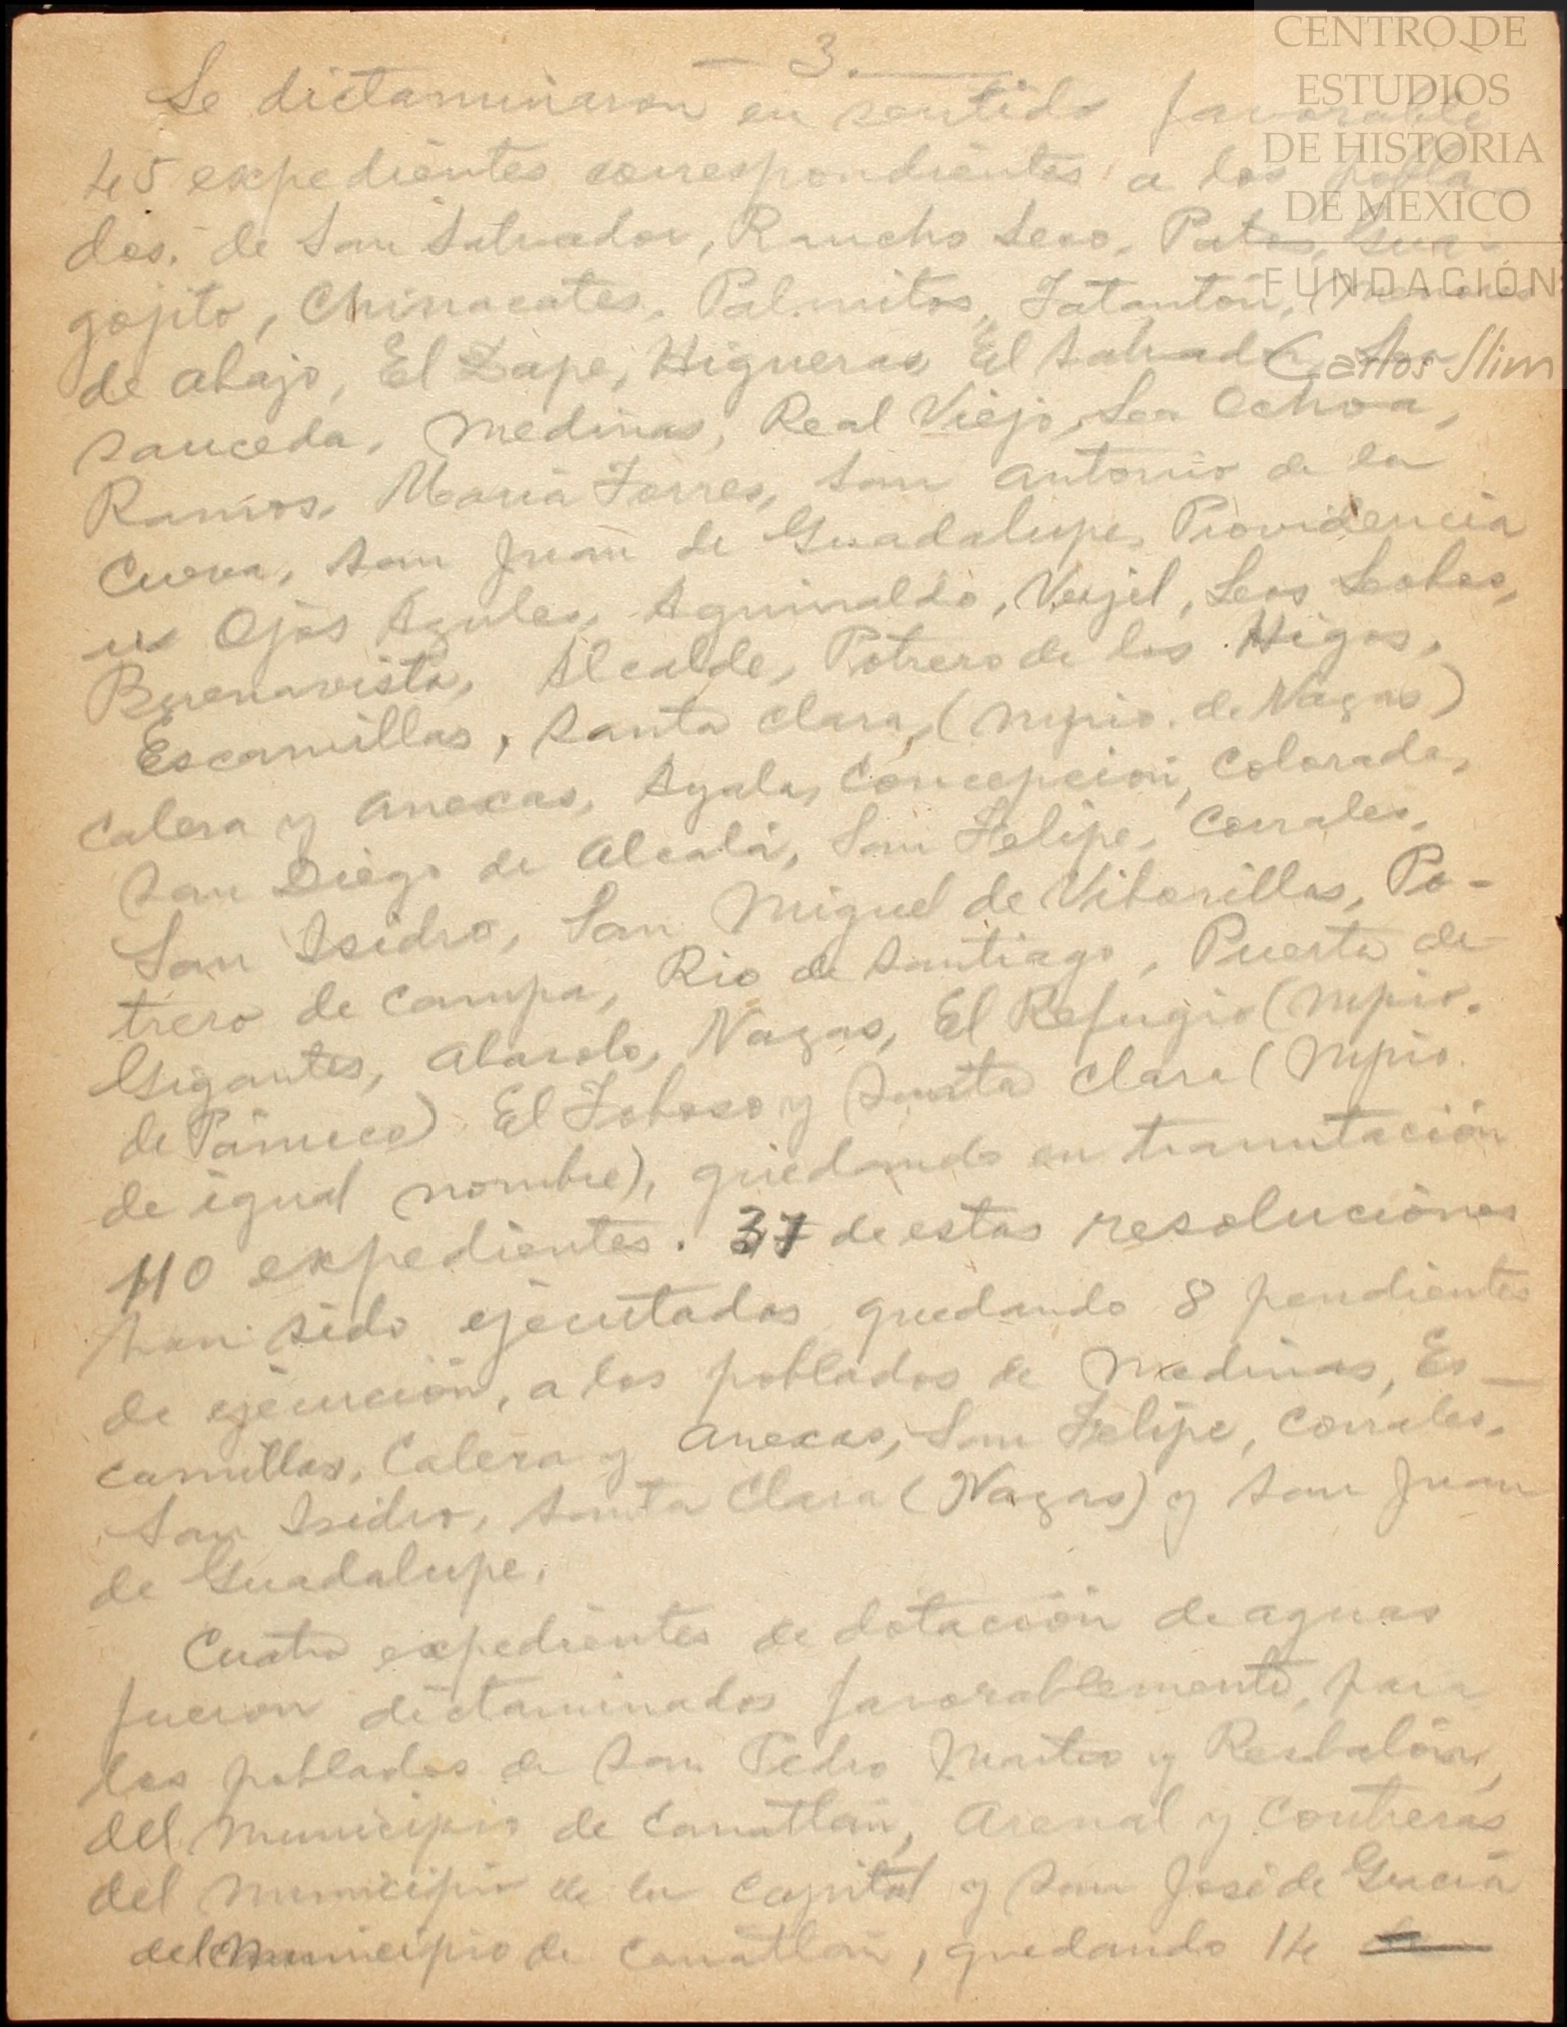 CENTRO DE
ESTUDIOS
DE HISTORIA
DE MEXICO
FUNDACIÓN
Carlos Slim
— 3. —
Se dictaminaron en sentido favorable
45 expedientes correspondientes a los pobla-
dos. de San Salvador, Rancho Seco, Patos, Gua-
gojito, Chinacates, Palmitos, Tatantón,
de abajo, El Zape, Higueras, El Salvador, La
Sauceda, Medinas, Real Viejo, La Ochoa,
Ramos, María Torres, San Antonio de la
Cueva, San Juan de Guadalupe, Providencia
Ojos Azules, Aguinaldo, Verjel, Los Lobos,
Buenavista, Alcalde, Potrero de los Higos,
Escamillas, Santa Clara, (Mpio. de Nazas)
Calera y Anexas, Ayala, Concepción, Colorada,
San Diego de Alcalá, San Felipe, Corrales,
San Isidro, San Miguel de Viborillas, Po-
trero de Campa, Rio de Santiago, Puerta de
Gigantes, Abasolo, Nazas, El Refugio (Mpio.
de Pánuco) El Toboso y Santa Clara (Mpio.
de igual nombre), quedando en tramitación
110 expedientes. 37 de estas resoluciones
han sido ejecutadas quedando 8 pendientes
de ejecución, a los poblados de Medinas, Es-
camillas, Calera y Anexas, San Felipe, Corrales,
San Isidro, Santa Clara (Nazas) y San Juan
de Guadalupe.
Cuatro expedientes de dotación de aguas
fueron dictaminados favorablemente, para
los poblados de San Pedro Martir y Resbalón,
del Municipio de Canatlán, Arenal y Contreras
del Municipio de la Capital y San José de Gracia
del Municipio de Canatlán, quedando 14